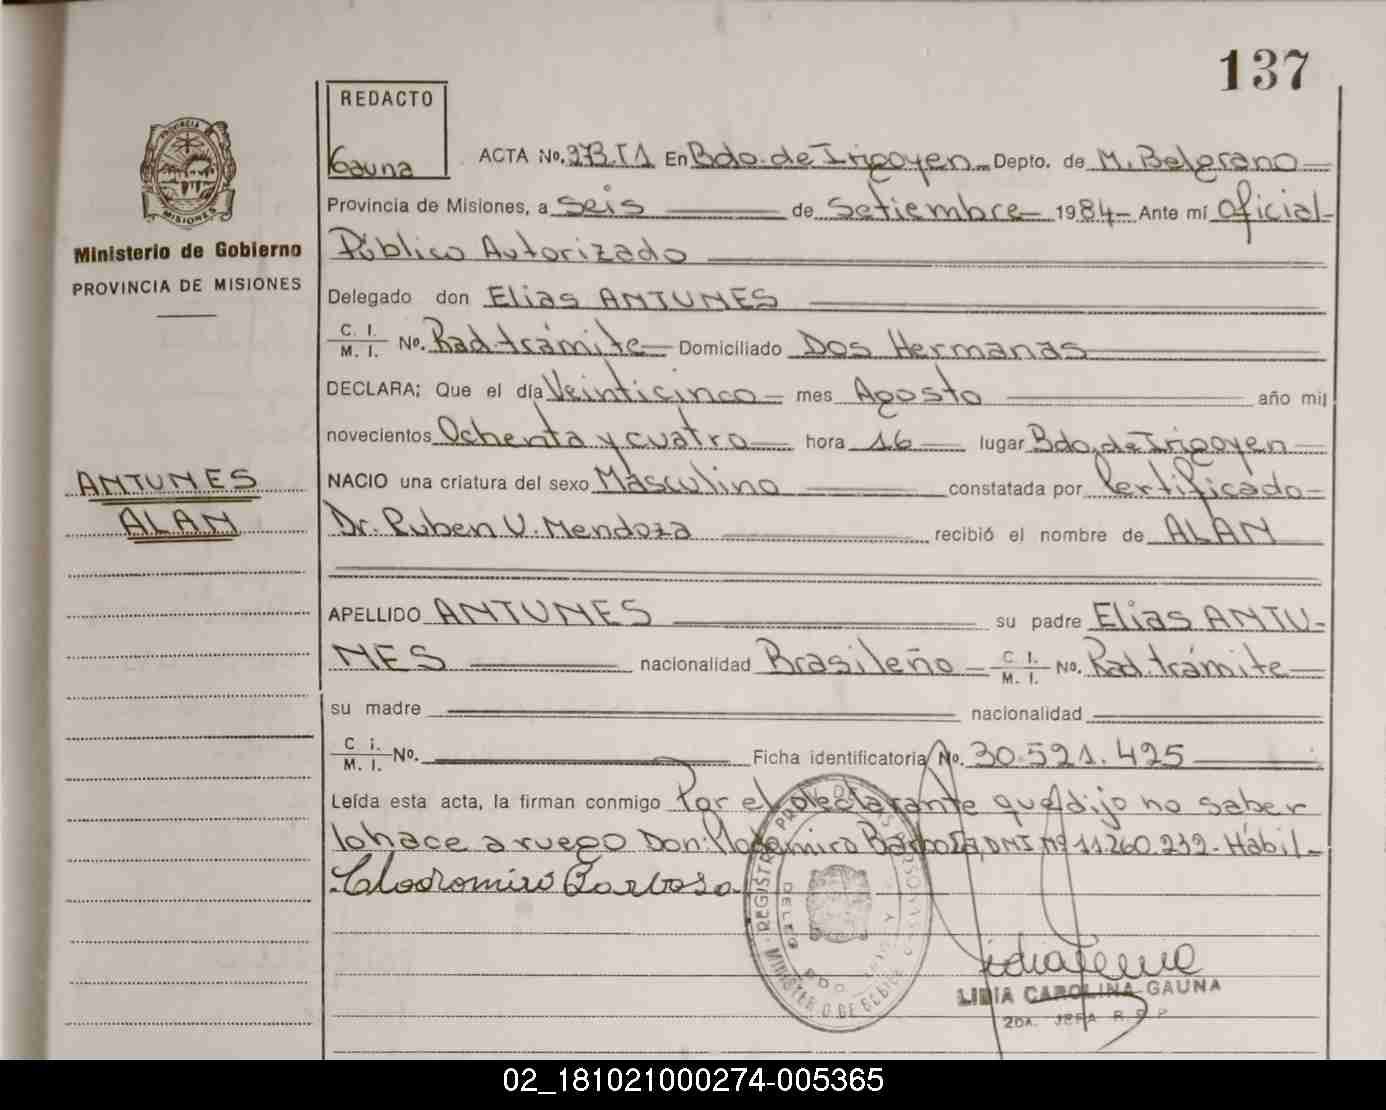 137
REDACTO
Gauna
PROVINCIA
MISIONES
Ministerio de Gobierno
PROVINCIA DE MISIONES
ACTA No. 273.T1 En Bdo. de Irigoyen Depto. de M. Belgrano
Provincia de Misiones, a Seis de Setiembre 1984 Ante mí Oficial
Público Autorizado
Delegado don Elias ANTUNES
C. I. / M. I. No. Rad. trámite Domiciliado Dos Hermanas
DECLARA; Que el día Veinticinco mes Agosto año mil
novecientos Ochenta y cuatro hora 16 lugar Bdo. de Irigoyen
NACIO una criatura del sexo Masculino constatada por Certificado
Dr. Ruben V. Mendoza recibió el nombre de ALAN
ANTUNES
ALAN
APELLIDO ANTUNES su padre Elias ANTU-
NES nacionalidad Brasileño C. I. / M. I. No. Rad. trámite
su madre nacionalidad
C. i. / M. I. No. Ficha identificatoria No. 30.521.425
Leída esta acta, la firman conmigo Por el declarante que dijo no saber
lo hace a ruego Don: Barboza, DNI Nº 11260.232- Hábil-
Clodromiro Barbosa
REGISTRO PROV. DE LAS PERSONAS
MINISTERIO DE GOBIERNO
LIDIA CAROLINA GAUNA
2DA. JEFA R. P. P
02_181021000274-005365